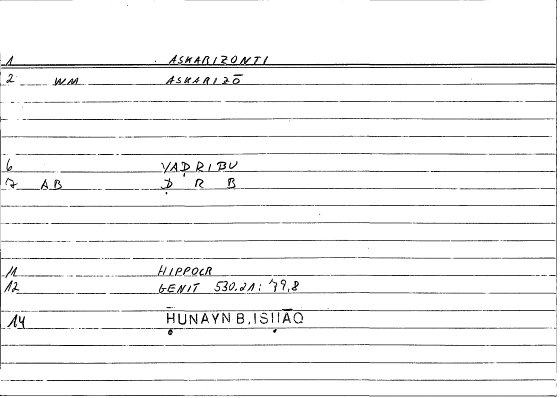 1 ASKARIZONTI
2 WM ASKARIZŌ
6 YAḌRIBU
7 AB Ḍ R B
11 HIPPOCR
12 GENIT 530.21: 79,8
14 ḤUNAYN B. ISḤĀQ